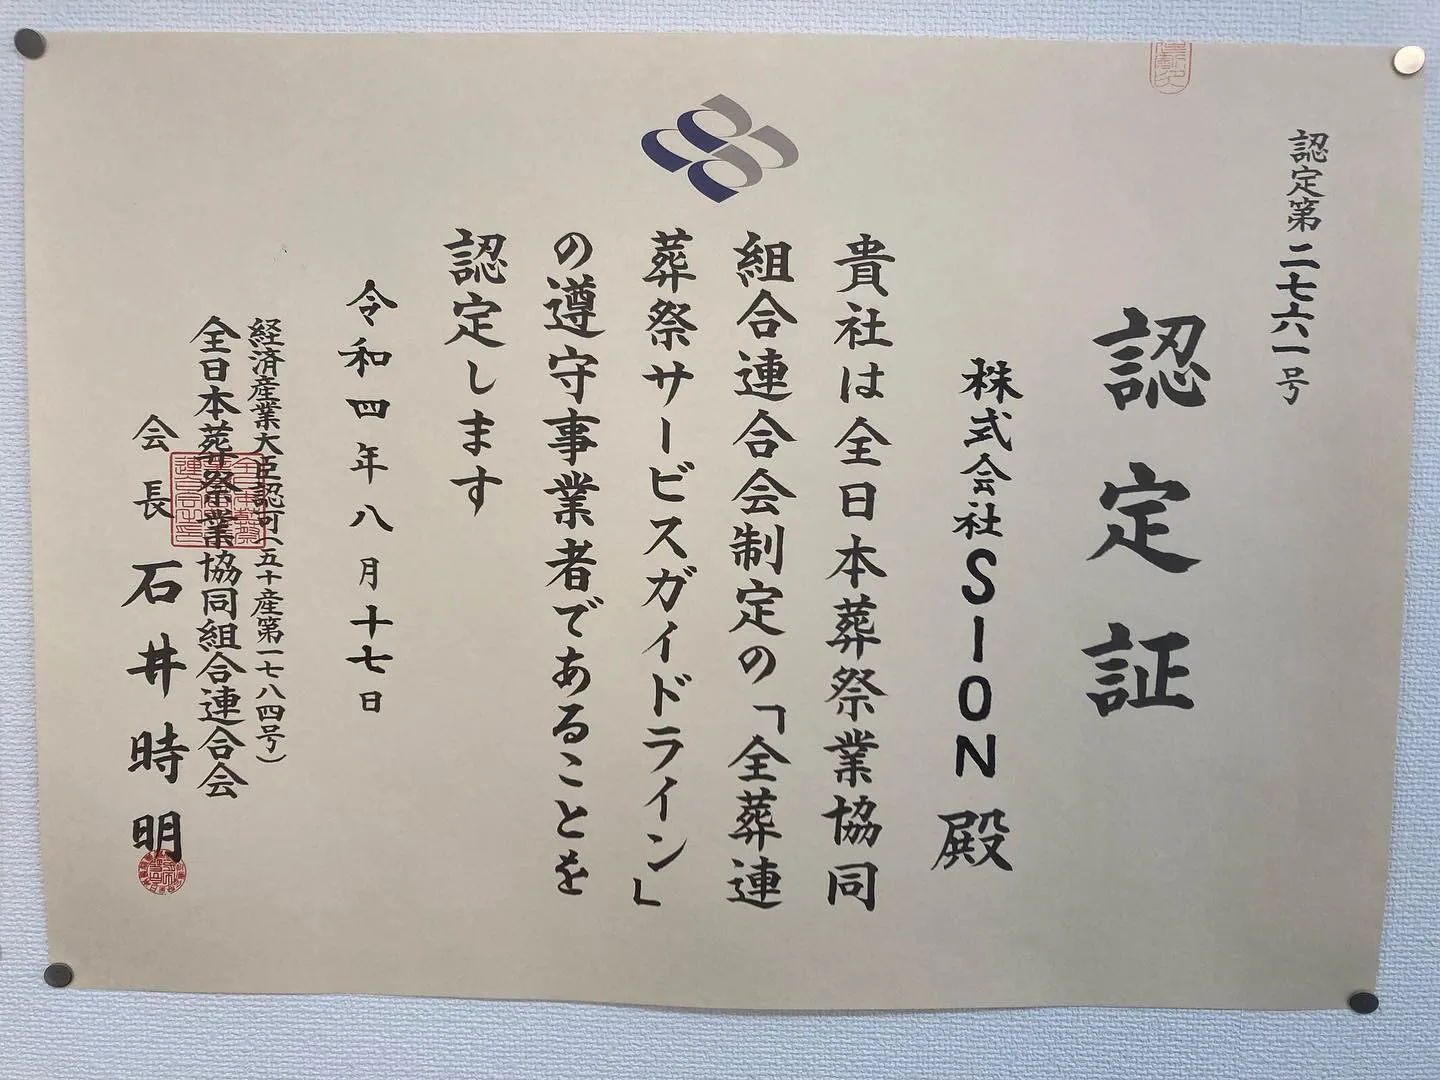 認定第二七六一号
認定証
株式会社SION殿
貴社は全日本葬祭業協同
組合連合会制定の「全葬連
葬祭サービスガイドライン」
の遵守事業者であることを
認定します
令和四年八月十七日
経済産業大臣認可(五十産第一七八四号)
全日本葬祭業協同組合連合会
会長 石井時明